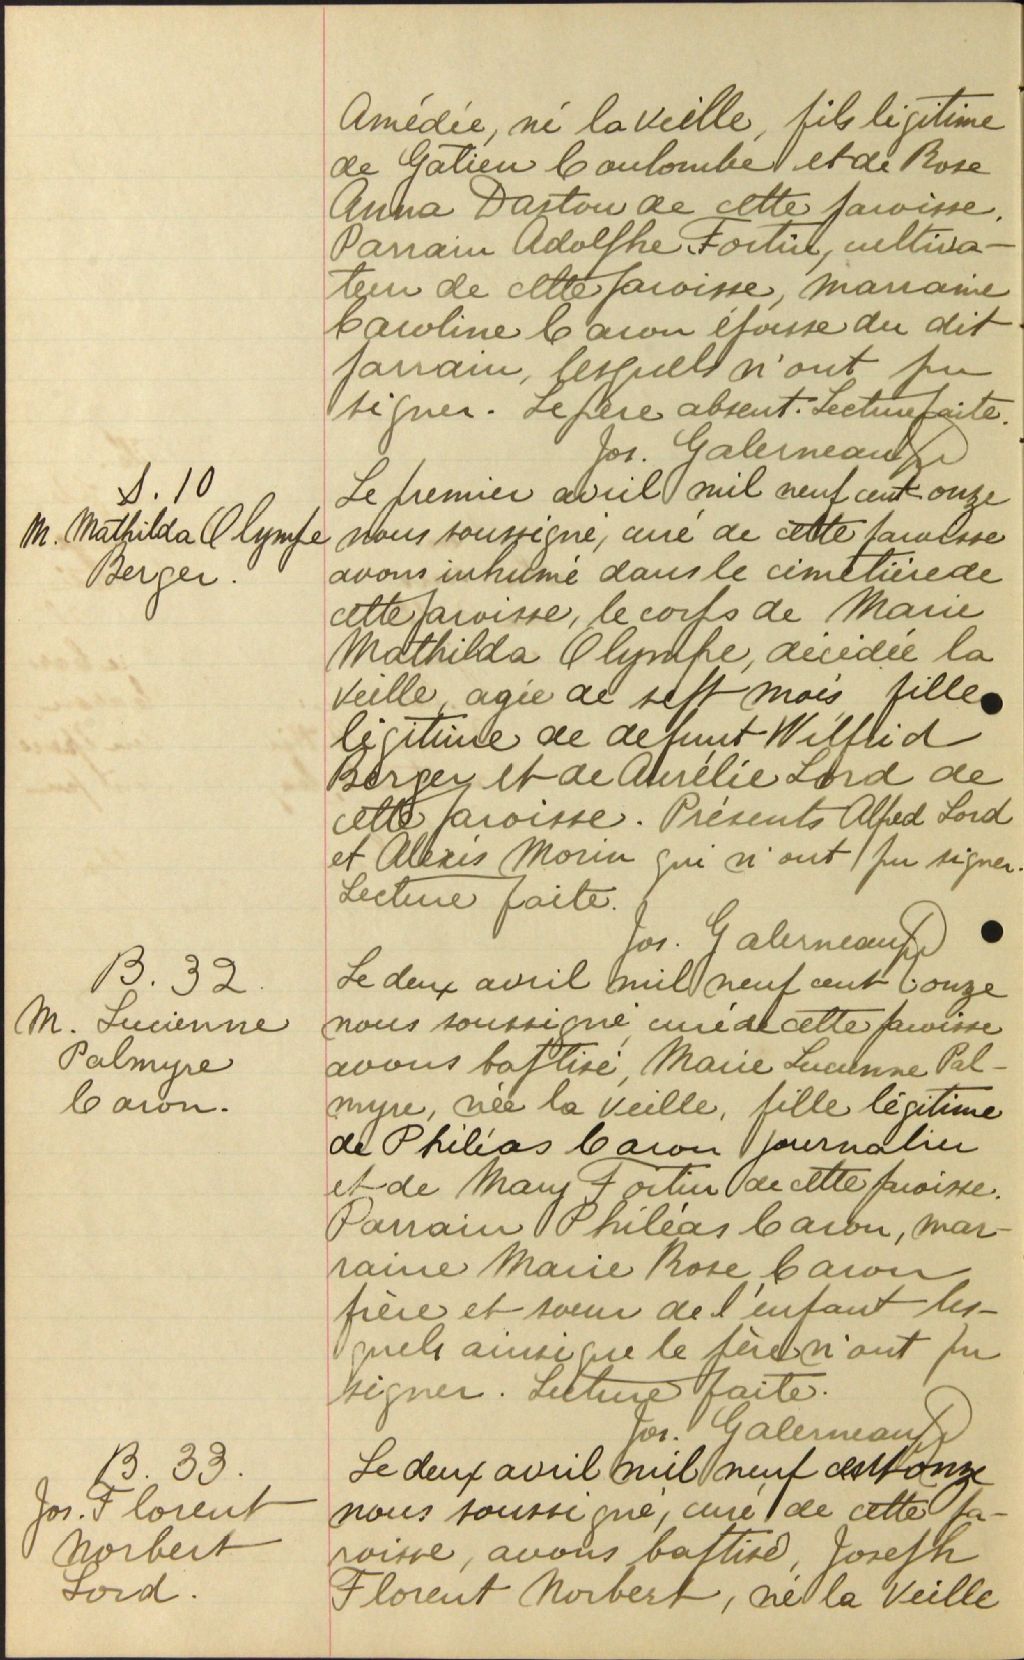 Amédée, né la veille, fils légitime
de Gatien Coulombe et de Rose
Anna Dastou de cette paroisse.
Parrain Adolphe Fortin, cultiva-
teur de cette paroisse, marraine
Caroline Caron épouse du dit
parrain, lesquels n'ont pu
signer. Le père absent. Lecture faite.
Jos. Galerneau Ptre
S. 10
M. Mathilda Olympe
Berger.
Le premier avril mil neuf cent onze
nous soussigné, curé de cette paroisse
avons inhumé dans le cimetière de
cette paroisse, le corps de Marie
Mathilda Olympe, décédée la
veille, agée de sept mois, fille
légitime de defunt Wilfrid
Berger et de Aurélie Lord de
cette paroisse. Présents Alfred Lord
et Alexis Morin qui n'ont pu signer.
Lecture faite.
Jos. Galerneau Ptre
B. 32.
M. Lucienne
Palmyre
Caron.
Le deux avril mil neuf cent onze
nous soussigné, curé de cette paroisse
avons baptisé, Marie Lucienne Pal-
myre, née la veille, fille légitime
de Philéas Caron journalier
et de Mary Fortin de cette paroisse.
Parrain Philéas Caron, mar-
raine Marie Rose Caron
frère et soeur de l'enfant les-
quels ainsi que le père n'ont pu
signer. Lecture faite.
Jos. Galerneau Ptre
B. 33.
Jos. Florent
Norbert
Lord.
Le deux avril mil neuf cent onze
nous soussigné, curé de cette pa-
roisse, avons baptisé, Joseph
Florent Norbert, né la veille